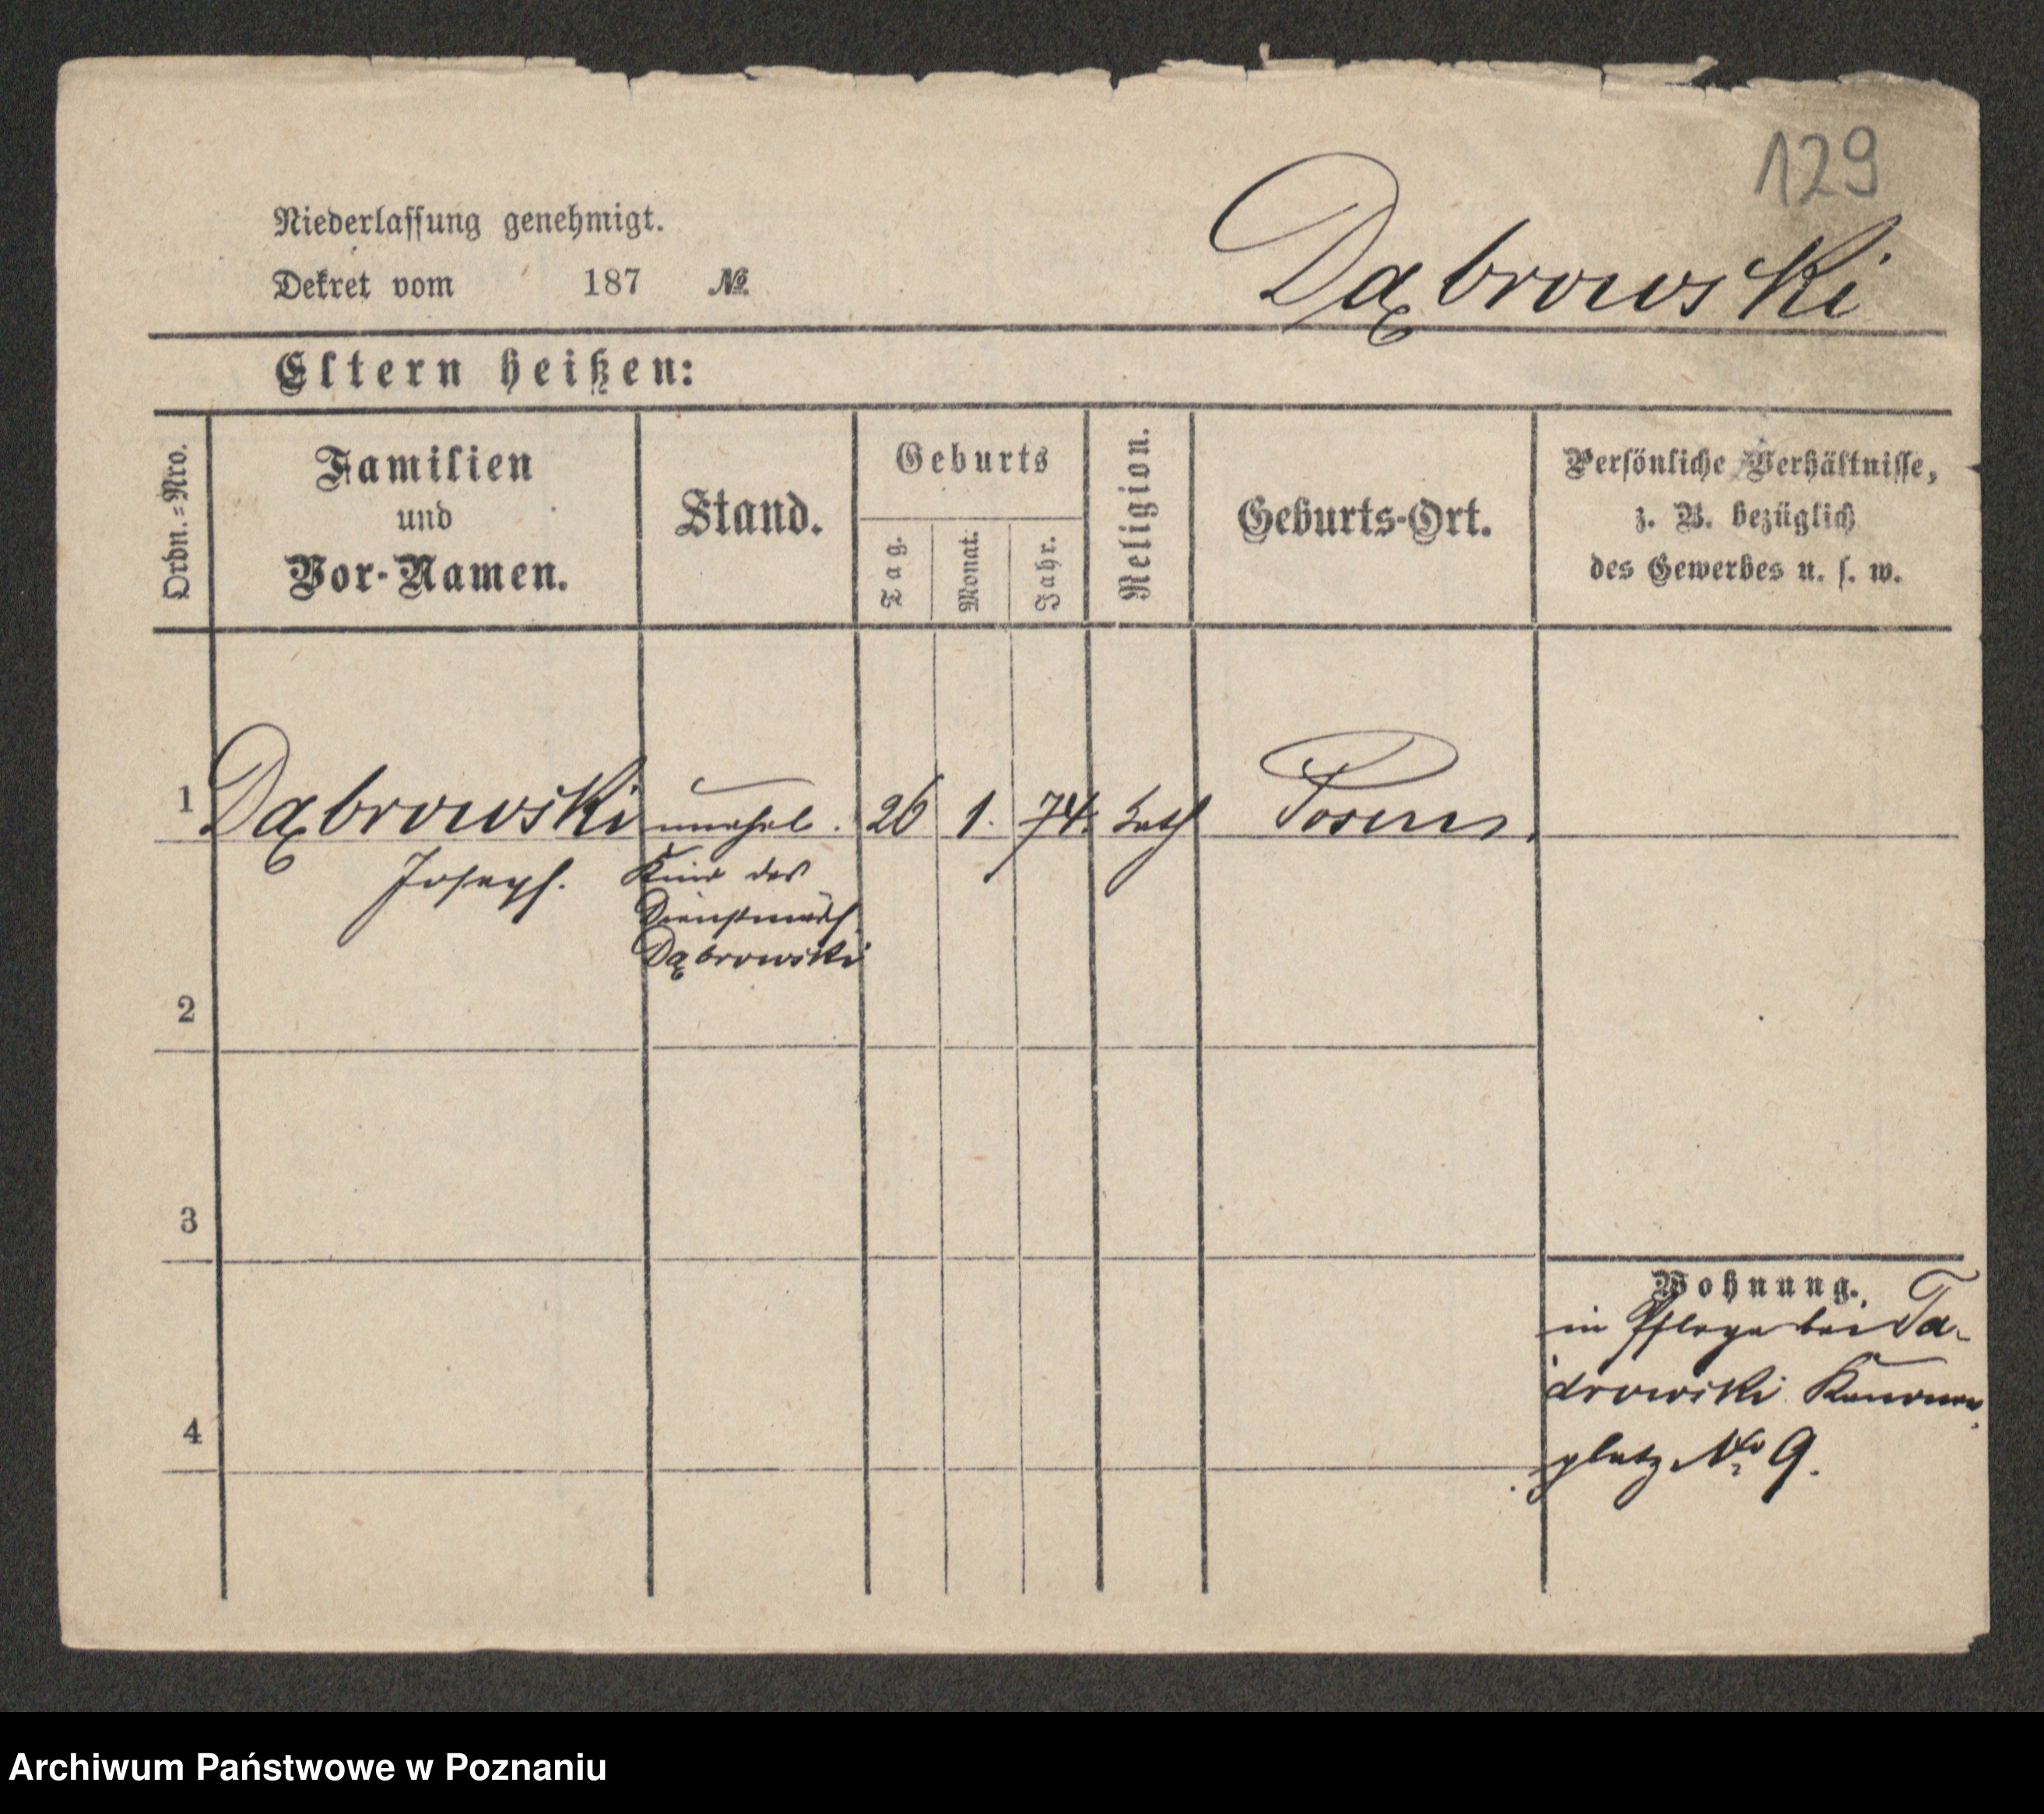 129
Niederlassung genehmigt.
Dąbrowski
Dekret vom 187 №
Eltern heißen:
Ordn.=Nro.
Familien
und
Vor-Namen.
Stand.
Geburts
Tag.
Monat.
Jahr.
Religion.
Geburts-Ort.
Persönliche Verhältnisse,
z. B. bezüglich
des Gewerbes u. s. w.
1 Dąbrowski unehel. 26 1. 74. kath Posen.
Joseph. Kind des
Dienstmädch.
Dąbrowski
2
3
4
Wohnung.
in Pflege bei Ta-
drowski Kanonen
platz No 9.
Archiwum Państwowe w Poznaniu